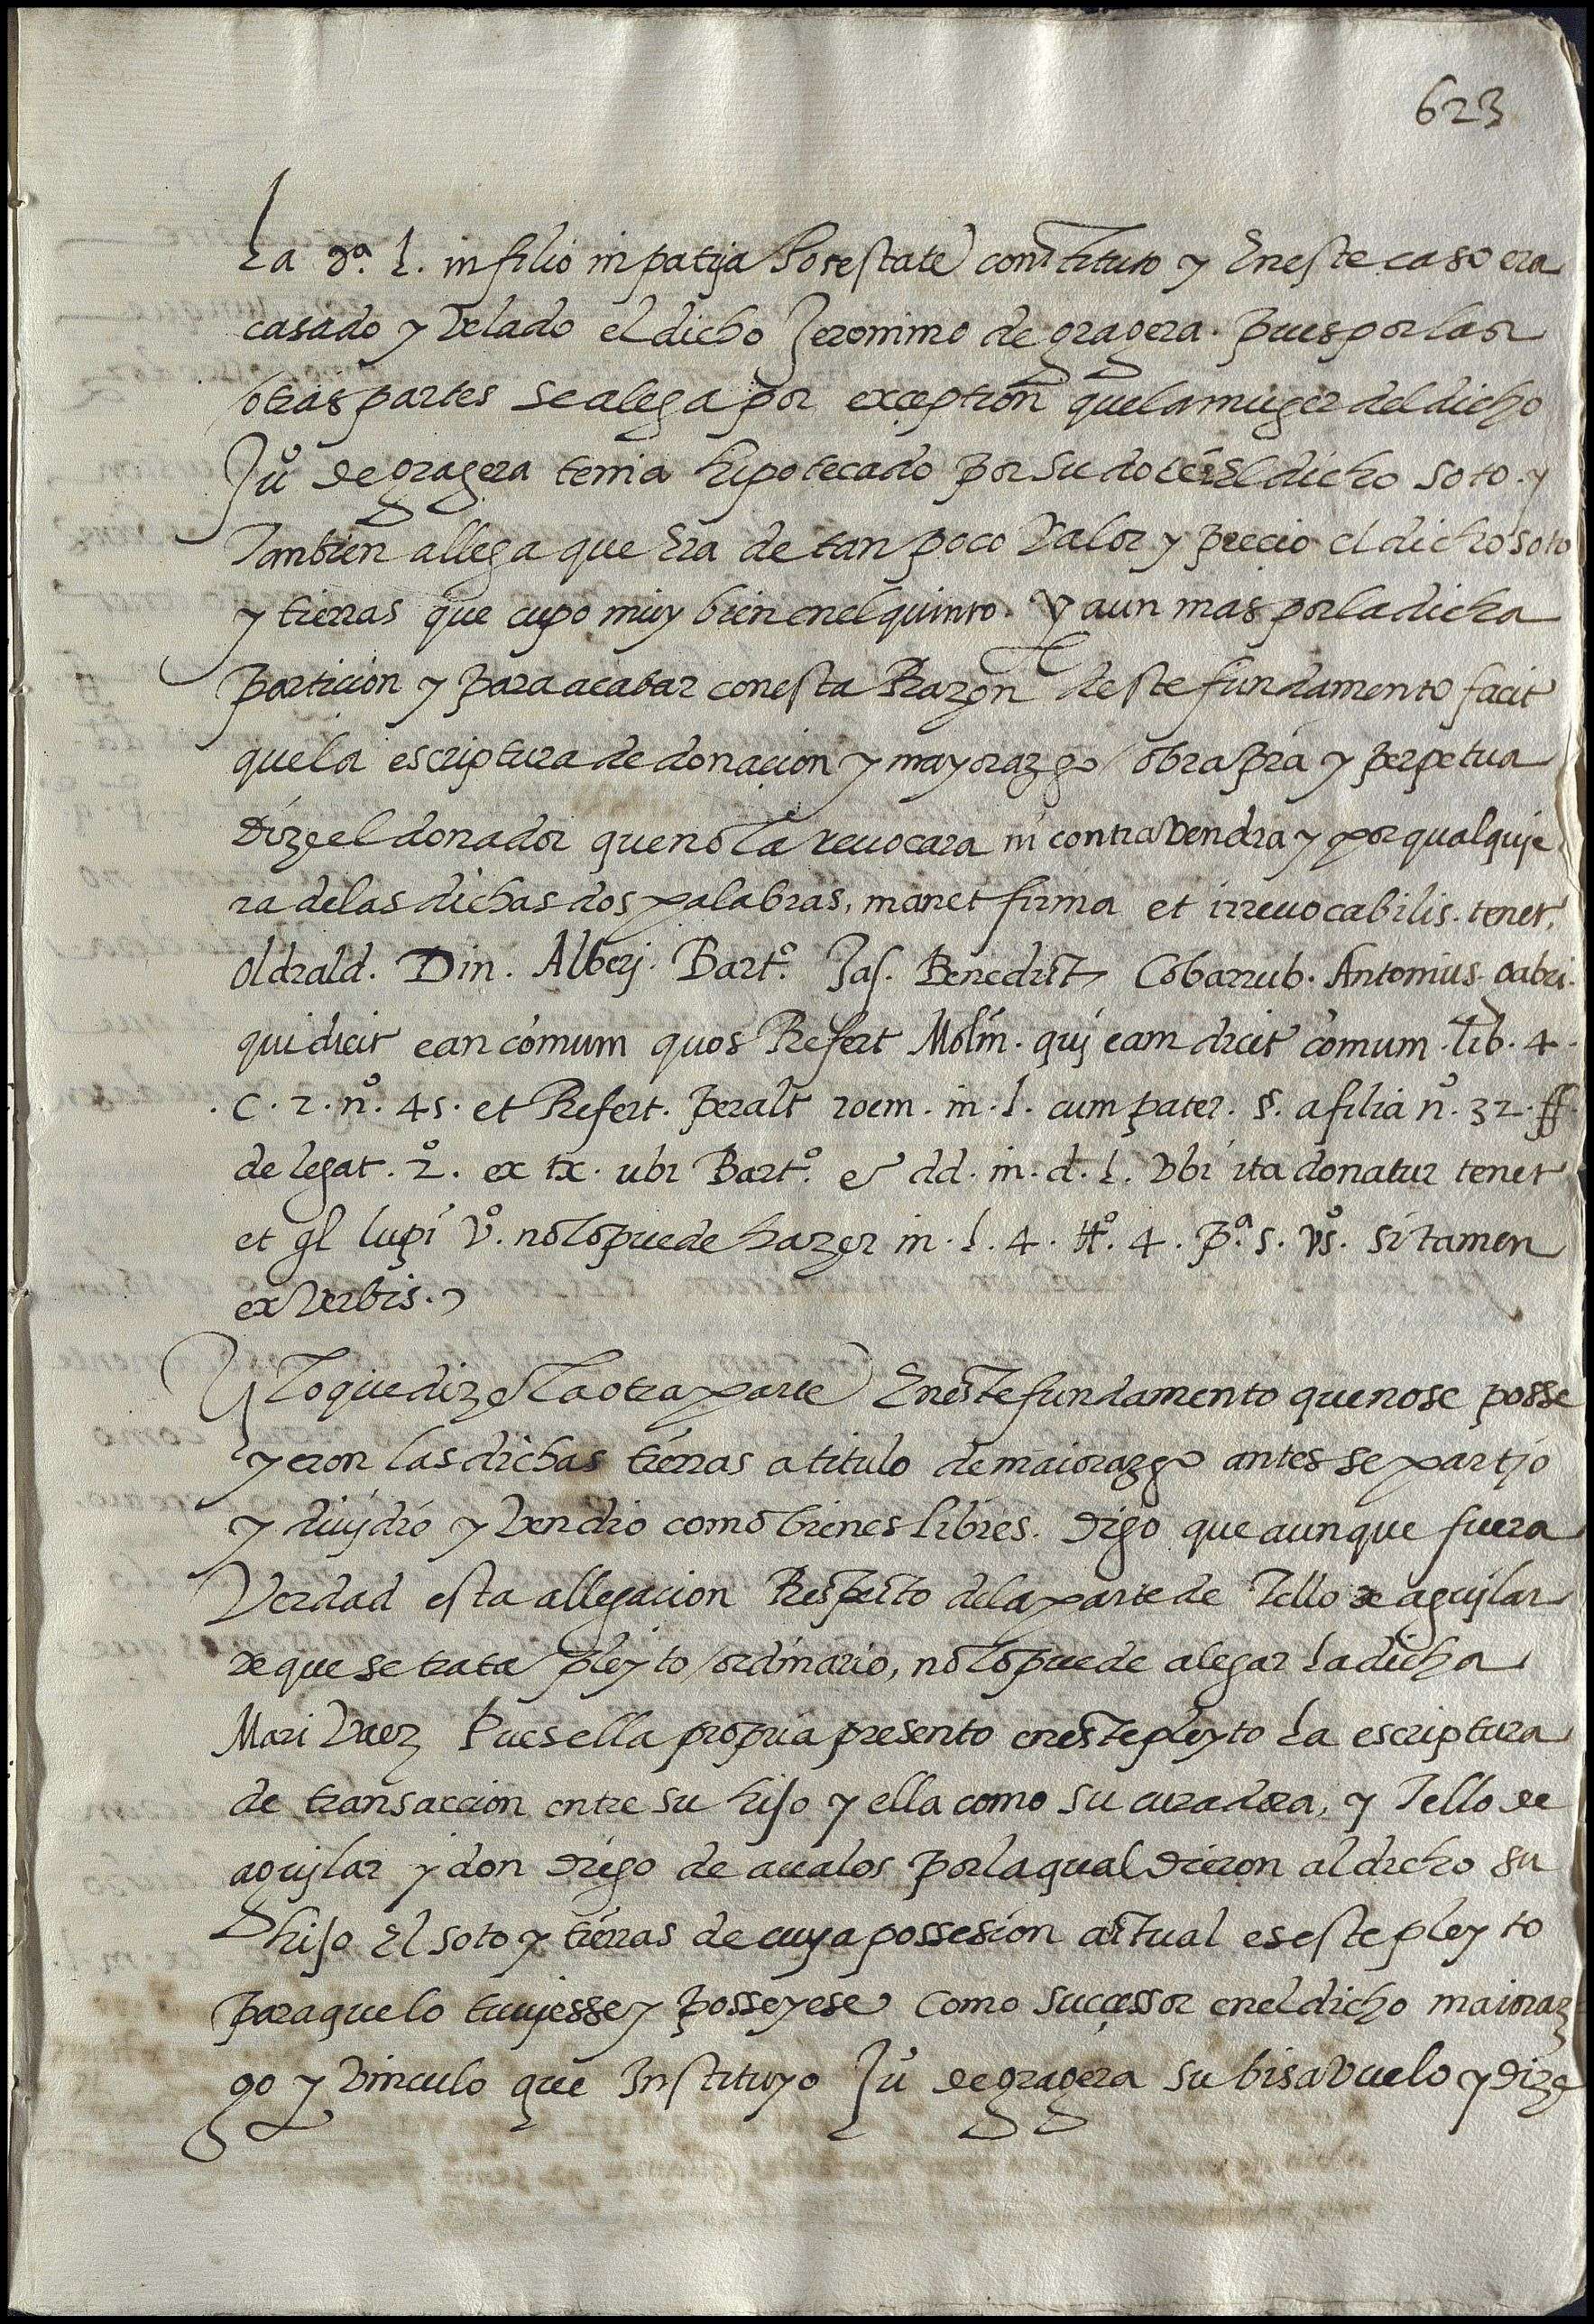 623
La dª. l. in filio in patria Potestate constituto y En este caso era
casado y Velado el dicho Jeronimo de gragera. pues por las
otras partes se alega por exception que la muger del dicho
Juº de gragera tenia hipotecado por su dote El dicho soto. y
Tambien allega que Era de tan poco Valor y precio el dicho soto
y tierras que cupo muy bien en el quinto. Y aun mas por la dicha
particion y para acabar con esta Razon deste fundamento facit
que la escriptura de donaçion y mayorazgo obra pia y perpetua
Dize el donador que no la reuocara ni contravendra y por qualquie
ra de las dichas dos palabras, manet firma et irreuocabilis. tenet.
Oldrald. Din. Alberj. Bartº. Jas. Benedict Cobarrub. Antonius gabri.
qui dicit ean comum quos Refert Molin. quj eam dicit comum. lib. 4.
. c. 2. nº. 45. et Refert. peralt in. l. cum pater. §. a filia nº. 32. ff.
de legat. 2º. ex tx. ubi Bartº. & dd. in. d. l. Vbi ita donatur tenet
et gl lupi Vº. no lo puede hazer in. l. 4. ttº. 4. pª. 5. vsº. si tamen
ex Verbis.
Y lo que dize La otra parte En este fundamento que no se posse
yeron las dichas tierras a titulo de maiorazgo antes se partjo
y diuidio y Vendio como bienes libres. Digo que aunque fuera
Verdad esta allegacion Respecto de la parte de Tello de aguilar
de que se trata pleyto ordinario, no lo puede alegar La dicha
Mari Vaez Pues ella propria presento en este pleyto La escriptura
de transaccion entre su hijo y ella como su curadora, y Tello de
aguilar y don Diego de aualos por la qual Dieron al dicho su
hijo El soto y tierras de cuya possesion actual es este pleyto
para que lo tuuiesse y posseyese Como sucçessor en el dicho maioraz
go y Vinculo que Instituyo Juº de gragera su bisavuelo y Dize